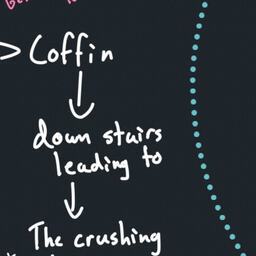 > Coffin
down stairs
leading to
The crushing